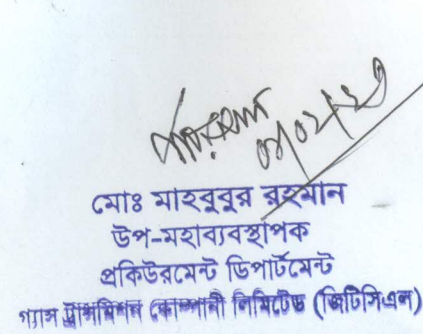 মোঃ মাহবুবুর রহমান
উপ-মহাব্যবস্থাপক
প্রকিউরমেন্ট ডিপার্টমেন্ট
গ্যাস ট্রান্সমিশন কোম্পানী লিমিটেড (জিটিসিএল)